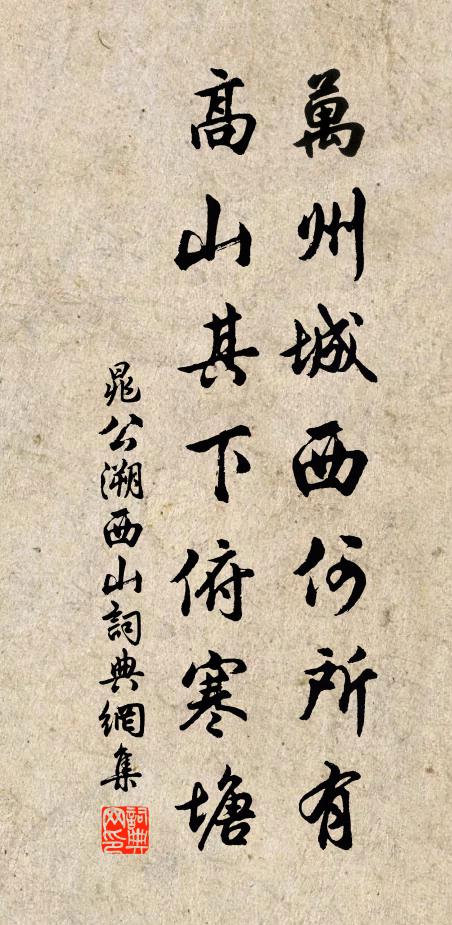 萬州城西何所有
高山其下俯寒塘
晁公溯西山詞典網集
詞典網印